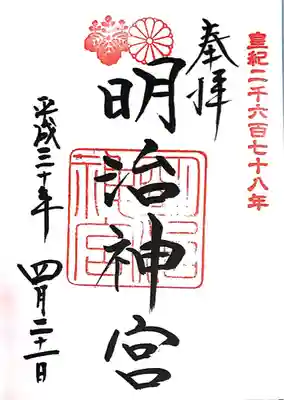 皇紀二千六百七十八年
奉拝
明治神宮
平成三十年 四月二十一日
明治神宮